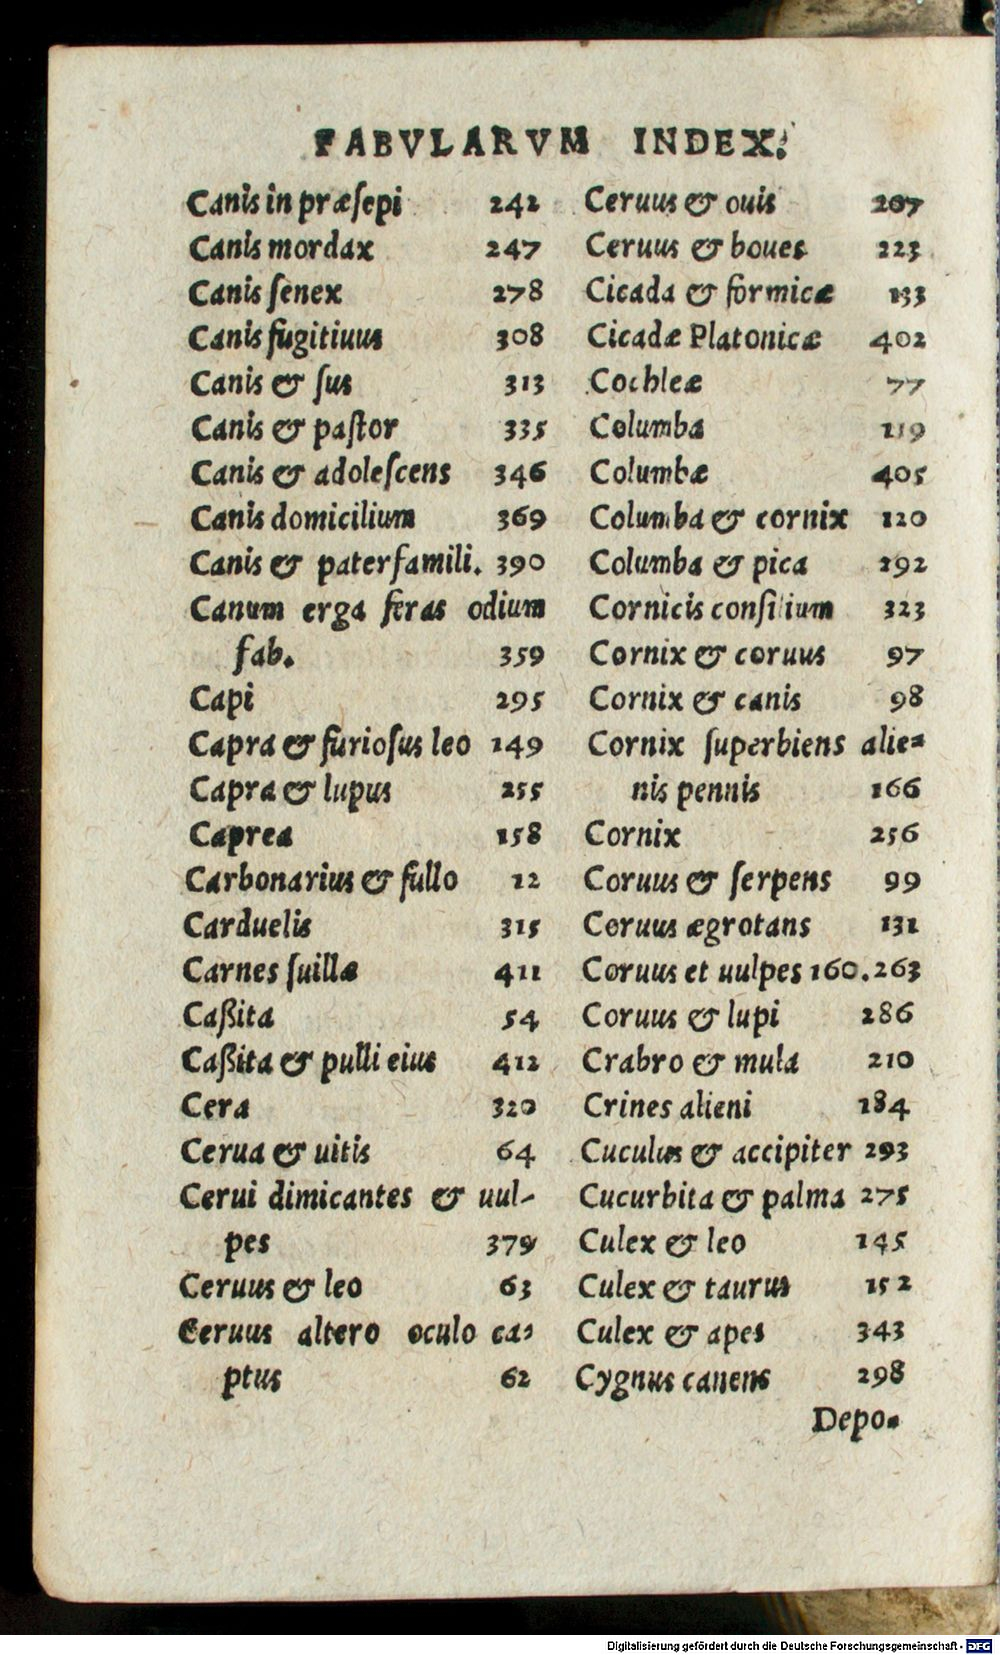 FABVLARVM INDEX.
Canis in præsepi 242
Canis mordax 247
Canis senex 278
Canis fugitiuus 308
Canis & sus 313
Canis & pastor 335
Canis & adolescens 346
Canis domicilium 369
Canis & paterfamili. 390
Canum erga feras odium
fab. 359
Capi 295
Capra & furiosus leo 149
Capra & lupus 255
Caprea 158
Carbonarius & fullo 12
Carduelis 315
Carnes suillæ 411
Caßita 54
Caßita & pulli eius 412
Cera 320
Cerua & uitis 64
Cerui dimicantes & uul-
pes 379
Ceruus & leo 63
Ceruus altero oculo ca-
ptus 62
Ceruus & ouis 207
Ceruus & boues 223
Cicada & formicæ 133
Cicadæ Platonicæ 402
Cochleæ 77
Columba 119
Columbæ 405
Columba & cornix 120
Columba & pica 292
Cornicis consilium 323
Cornix & coruus 97
Cornix & canis 98
Cornix superbiens alie-
nis pennis 166
Cornix 256
Coruus & serpens 99
Coruus ægrotans 131
Coruus et uulpes 160.263
Coruus & lupi 286
Crabro & mula 210
Crines alieni 184
Cuculus & accipiter 293
Cucurbita & palma 275
Culex & leo 145
Culex & taurus 152
Culex & apes 343
Cygnus canens 298
Depo-
Digitalisierung gefördert durch die Deutsche Forschungsgemeinschaft - DFG